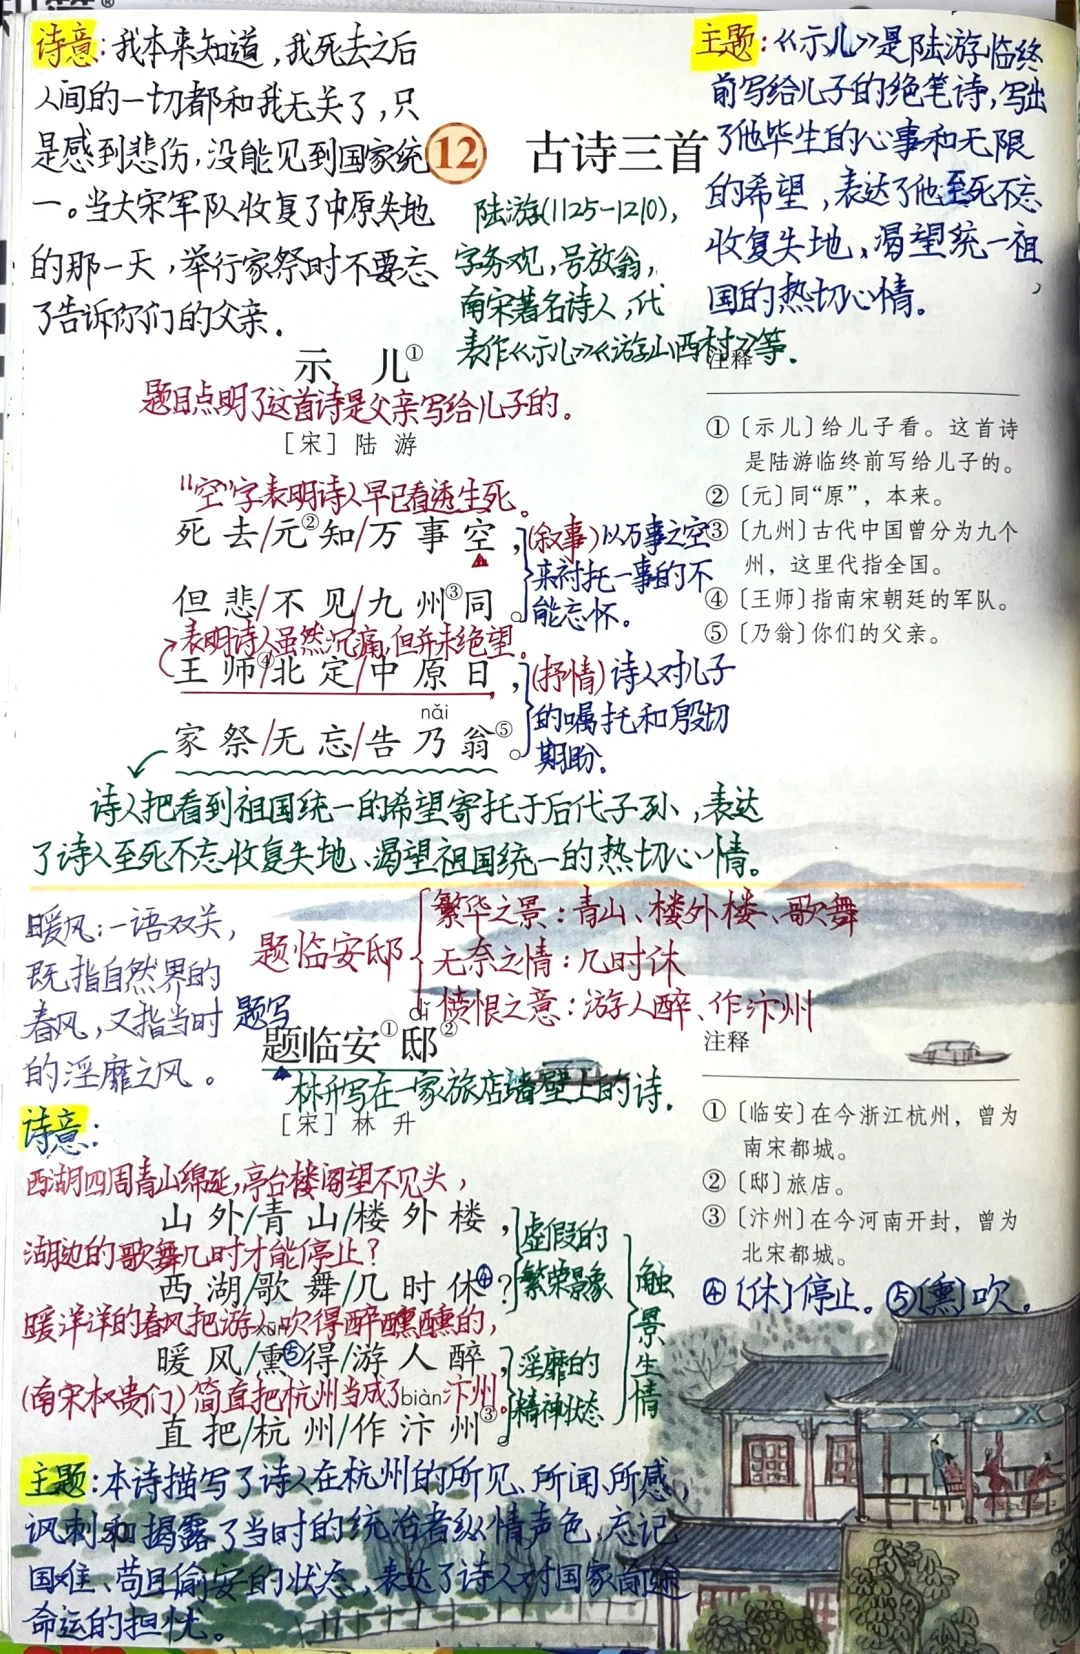 诗意：我本来知道，我死去之后
人间的一切都和我无关了，只
是感到悲伤，没能见到国家统
一。当大宋军队收复了中原失地
的那一天，举行家祭时不要忘
了告诉你们的父亲．
12 古诗三首
陆游(1125-1210)，
字务观，号放翁，
南宋著名诗人，代
表作《示儿》《游山西村》等．
主题：《示儿》是陆游临终
前写给儿子的绝笔诗，写出
了他毕生的心事和无限
的希望，表达了他至死不忘
收复失地、渴望统一祖
国的热切心情。
示 儿①
题目点明了这首诗是父亲写给儿子的。
［宋］陆 游
"空"字表明诗人早已看透生死。
死去/元②知/万事空，
(叙事)以万事之空
来衬托一事的不
能忘怀。
但悲/不见/九州③同。
表明诗人虽然沉痛，但并未绝望。
王师④/北定/中原日，
(抒情)诗人对儿子
的嘱托和殷切
期盼．
nǎi
家祭/无忘/告乃翁⑤。
诗人把看到祖国统一的希望寄托于后代子孙，表达
了诗人至死不忘收复失地、渴望祖国统一的热切心情。
注释
①〔示儿〕给儿子看。这首诗
是陆游临终前写给儿子的。
②〔元〕同“原”，本来。
③〔九州〕古代中国曾分为九个
州，这里代指全国。
④〔王师〕指南宋朝廷的军队。
⑤〔乃翁〕你们的父亲。
暖风：一语双关，
既指自然界的
春风，又指当时
的淫靡之风。
题临安邸
繁华之景：青山、楼外楼、歌舞
无奈之情：几时休
愤恨之意：游人醉、作汴州
题写
dǐ
题临安①邸②
林升写在一家旅店墙壁上的诗．
［宋］林 升
诗意：
西湖四周青山绵延，亭台楼阁望不见头，
山外/青山/楼外楼，
湖边的歌舞几时才能停止？
西湖/歌舞/几时休④？
虚假的
繁荣景象
暖洋洋的春风把游人吹得醉醺醺的，
xūn
暖风/熏⑤得/游人醉，
(南宋权贵们)简直把杭州当成了汴州。
biàn
直把/杭州/作汴州③。
淫靡的
精神状态
触景生情
注释
①〔临安〕在今浙江杭州，曾为
南宋都城。
②〔邸〕旅店。
③〔汴州〕在今河南开封，曾为
北宋都城。
④〔休〕停止。⑤〔熏〕吹．
主题：本诗描写了诗人在杭州的所见、所闻、所感，
讽刺和揭露了当时的统治者纵情声色、忘记
国难、苟且偷安的状态，表达了诗人对国家前途
命运的担忧。